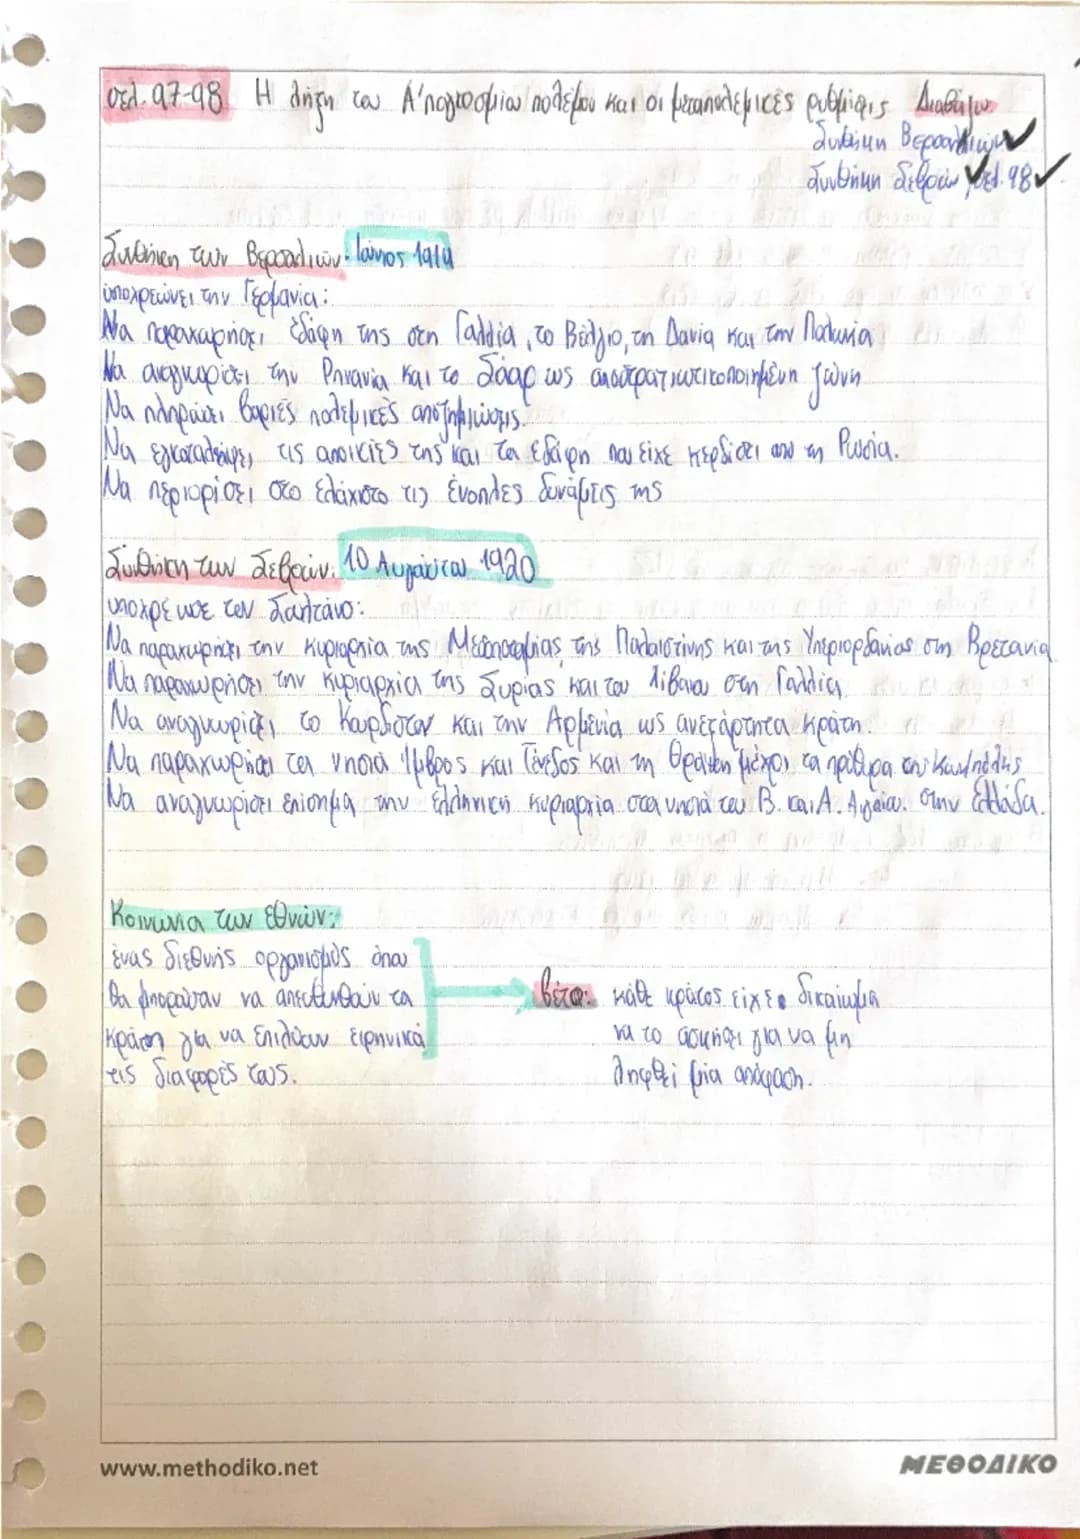 σελ. 97-98 Η λήξη του Α' παγκοσμίου πολέμου και οι μεταπολεμικές ρυθμίσεις Διαβάζω
Συνθήκη Βερσαλλιών ✓
Συνθήκη Σεβρών ✓ σελ. 98 ✓
Συνθήκη των Βερσαλλιών: Ιούνιος 1919
υποχρεώνει την Γερμανία:
Να παραχωρήσει εδάφη της στη Γαλλία, το Βέλγιο, τη Δανία και την Πολωνία
Να αναγνωρίσει την Ρηνανία και το Σάαρ ως αποστρατιωτικοποιημένη ζώνη
Να πληρώσει βαριές πολεμικές αποζημιώσεις.
Να εγκαταλείψει τις αποικίες της και τα εδάφη που είχε κερδίσει από τη Ρωσία.
Να περιορίσει στο ελάχιστο τις ένοπλες δυνάμεις της
Συνθήκη των Σεβρών: 10 Αυγούστου 1920
υποχρέωσε τον Σουλτάνο:
Να παραχωρήσει την κυριαρχία της Μεσοποταμίας, της Παλαιστίνης και της Υπεριορδανίας στη Βρετανία
Να παραχωρήσει την κυριαρχία της Συρίας και του Λιβάνου στη Γαλλία
Να αναγνωρίσει το Κουρδιστάν και την Αρμενία ως ανεξάρτητα κράτη.
Να παραχωρήσει τα νησιά Ίμβρος και Τένεδος και τη Θράκη μέχρι τα πρόθυρα της Κων/πολης
Να αναγνωρίσει επίσημα την ελληνική κυριαρχία στα νησιά του Β. και Α. Αιγαίου. στην Ελλάδα.
Κοινωνία των Εθνών:
ένας διεθνής οργανισμός όπου
θα μπορούσαν να απευθυνθούν τα
κράτη για να επιλύουν ειρηνικά
τις διαφορές τους.
βέτο: κάθε κράτος είχε δικαίωμα
να το ασκήσει για να μη
ληφθεί μία απόφαση.
www.methodiko.net
ΜΕΘΟΔΙΚΟ